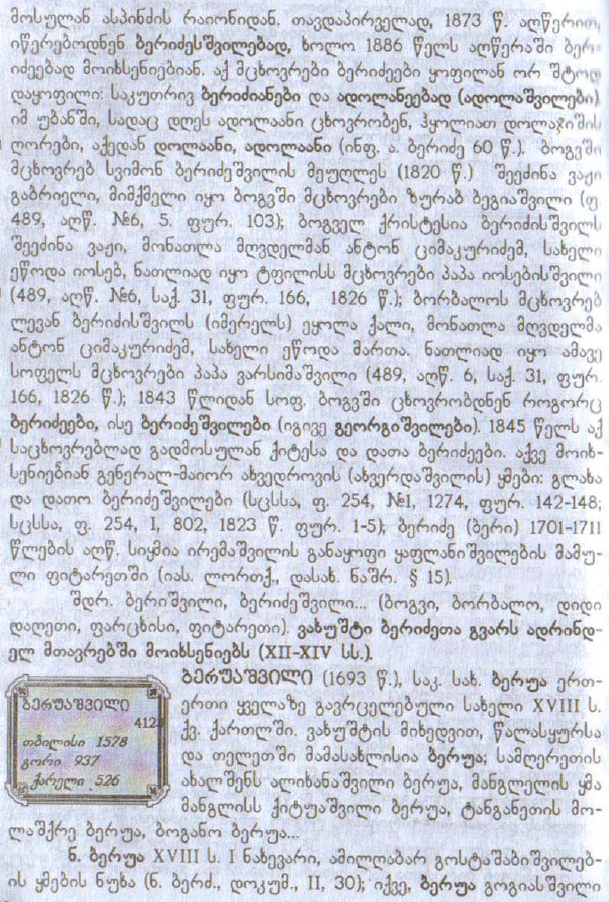 მოსულან ასპინძის რაიონიდან. თავდაპირველად, 1873 წ. აღწერით,
იწერებოდნენ ბერიძესშვილებად, ხოლო 1886 წელს აღწერაში ბერ-
იძეებად მოიხსენიებიან. აქ მცხოვრები ბერიძეები ყოფილან ორ შტოდ
დაყოფილი: საკუთრივ ბერიძიანები და ადოლანეებად (ადოლაშვილები)
იმ უბანში, სადაც დღეს ადოლაანი ცხოვრობენ, ჰყოლიათ დოლაჯიშის
ღორები, აქედან დოლაანი, ადოლაანი (ინფ. ა. ბერიძე 60 წ.). ბოგვში
მცხოვრებ სვიმონ ბერიძეშვილის მეუღლეს (1820 წ.) შეეძინა ვაჟი
გაბრიელი, მიმქმელი იყო ბოგვში მცხოვრები ზურაბ ბეგიაშვილი (ფ.
489, აღწ. №6, 5. ფურ. 103); ბოგველ ქრისტესია ბერიძისშვილს
შეეძინა ვაჟი, მონათლა მღვდელმან ანტონ ციმაკურიძემ, სახელი
ეწოდა იოსებ, ნათლიად იყო ტფილისს მცხოვრები პაპა იოსებისშვილი
(489, აღწ. №6, საქ. 31, ფურ. 166, 1826 წ.); ბორბალოს მცხოვრებ
ლევან ბერიძისშვილს (იმერელს) ეყოლა ქალი, მონათლა მღვდელმა
ანტონ ციმაკურიძემ, სახელი ეწოდა მართა. ნათლიად იყო ამავე
სოფელს მცხოვრები პაპა ვარსიმაშვილი (489, აღწ. 6, საქ. 31, ფურ.
166, 1826 წ.); 1843 წლიდან სოფ. ბოგვში ცხოვრობდნენ როგორც
ბერიძეები, ისე ბერიძეშვილები (იგივე გეორგიშვილები). 1845 წელს აქ
საცხოვრებლად გადმოსულან ქიტესა და დათა ბერიძეები. აქვე მოიხ-
სენიებიან გენერალ-მაიორ ახვედროვის (ახვერდაშვილის) ყმები: გლახა
და დათო ბერიძეშვილები (სცსსა, ფ. 254, №1, 1274, ფურ. 142-148;
სცსსა, ფ. 254, I, 802, 1823 წ. ფურ. 1-5); ბერიძე (ბერი) 1701-1711
წლების აღწ. სიყმია ირემაშვილის განაყოფი ყაფლანიშვილების მამუ-
ლი ფიტარეთში (იას. ლორთქ., დასახ. ნაშრ. § 15).
შდრ. ბერიშვილი, ბერიძეშვილი... (ბოგვი, ბორბალო, დიდი
დაღეთი, ფარცხისი, ფიტარეთი). ვახუშტი ბერიძეთა გვარს ადრინდ-
ელ მთავრებში მოიხსენიებს (XII-XIV სს.).
ბერუაშვილი
412
თბილისი 1578
გორი 937
ქარელი 526
ბერუაშვილი (1693 წ.), საკ. სახ. ბერუა ერთ-
ერთი ყველაზე გავრცელებული სახელი XVIII ს.
ქვ. ქართლში. ვახუშტის მიხედვით, წალასყურსა
და თელეთში მამასახლისია ბერუა; სამღერეთის
ახალშენს ალიხანაშვილი ბერუა, მანგლელის ყმა
მანგლისს ქიტუაშვილი ბერუა, ტანგანეთის მო-
ლაშქრე ბერუა, ბოგანო ბერუა...
ნ. ბერუა XVIII ს. I ნახევარი, ამილღაბარ გოსტაშაბიშვილებ-
ის ყმების ნუსხა (ნ. ბერძ., დოკუმ., II, 30); იქვე, ბერუა გოგიასშვილი